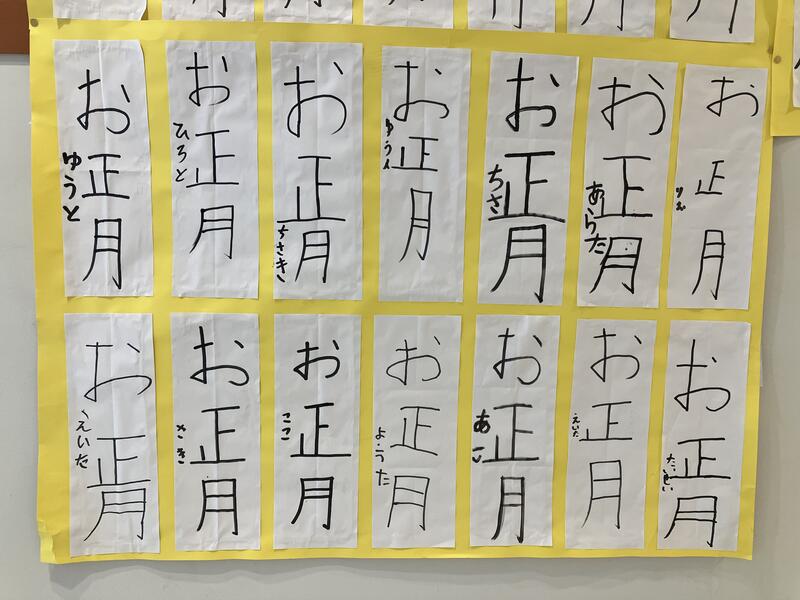 お正月
ゆうと
お正月
ひろと
お正月
ちさき
お正月
ゆうい
お正月
ちさ
お正月
あらた
お正月
りお
お正月
えいた
お正月
さき
お正月
ここ
お正月
ようた
お正月
あこ
お正月
えいた
お正月
たいせい